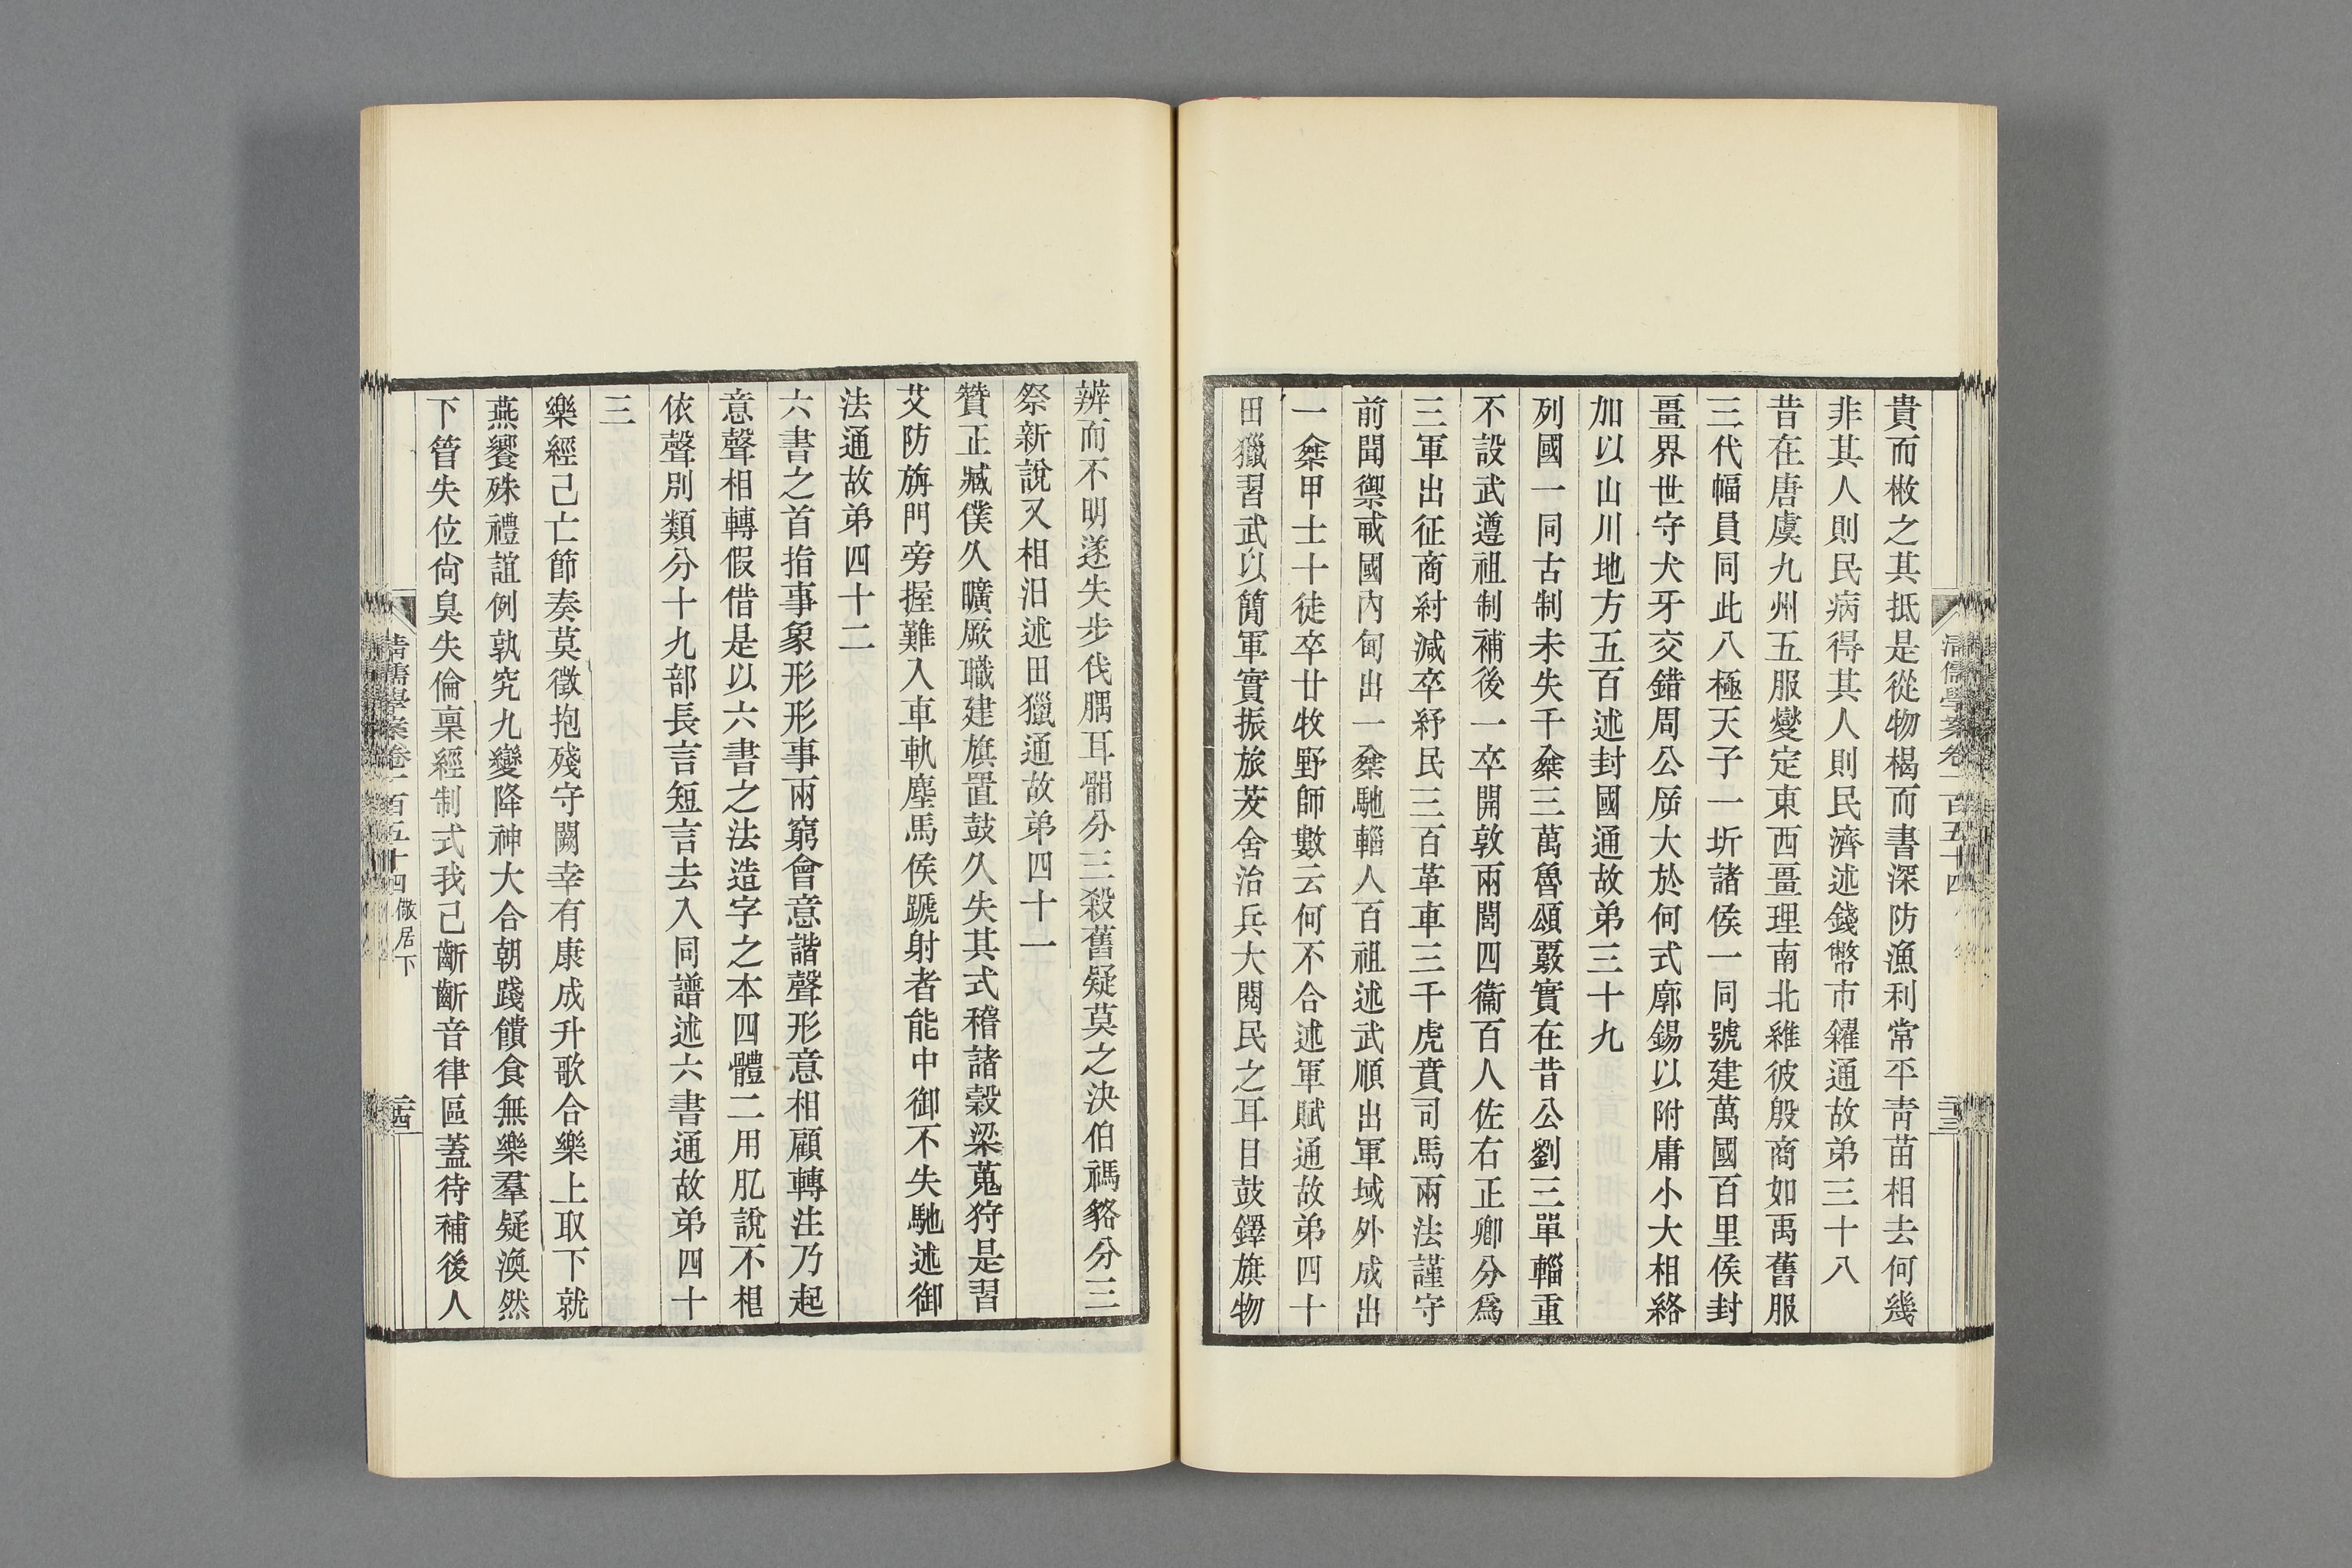 清儒學案卷一百五十四
二十三
貴而檄之其抵是從物楬而書深防漁利常平靑苗相去何幾
非其人則民病得其人則民濟述錢幣市糴通故弟三十八
昔在唐虞九州五服燮定東西畺理南北維彼殷商如禹舊服
三代幅員同此八極天子一圻諸侯一同號建萬國百里侯封
畺界世守犬牙交錯周公斥大於何式廓錫以附庸小大相絡
加以山川地方五百述封國通故弟三十九
列國一同古制未失千椉三萬魯頌覈實在昔公劉三單輜重
不設武遵祖制補後一卒開敦兩閭四衞百人佐右正卿分爲
三軍出征商紂減卒紓民三百革車三千虎賁司馬兩法謹守
前聞禦戒國內甸出一椉馳輜人百祖述武順出軍域外成出
一椉甲士十徒卒廿牧野師數云何不合述軍賦通故弟四十
田獵習武以簡軍實振旅茇舍治兵大閱民之耳目鼓鐸旗物
辨而不明遂失步伐腢耳髃分三殺舊疑莫之決伯禡貉分三
祭新說又相汨述田獵通故弟四十一
贊正臧僕久曠厥職建旗置鼓久失其式稽諸穀梁蒐狩是習
艾防旃門旁握難入車軌塵馬侯蹏射者能中御不失馳述御
法通故弟四十二
六書之首指事象形形事兩窮會意諧聲形意相顧轉注乃起
意聲相轉假借是以六書之法造字之本四體二用肊說不相
依聲別類分十九部長言短言去入同譜述六書通故弟四十
三
樂經已亡節奏莫徵抱殘守闕幸有康成升歌合樂上取下就
燕饗殊禮誼例孰究九變降神大合朝踐饋食無樂羣疑渙然
下管失位尙臭失倫稟經制式我已齗齗音律區蓋待補後人
清儒學案卷一百五十四 儆居下
二十四